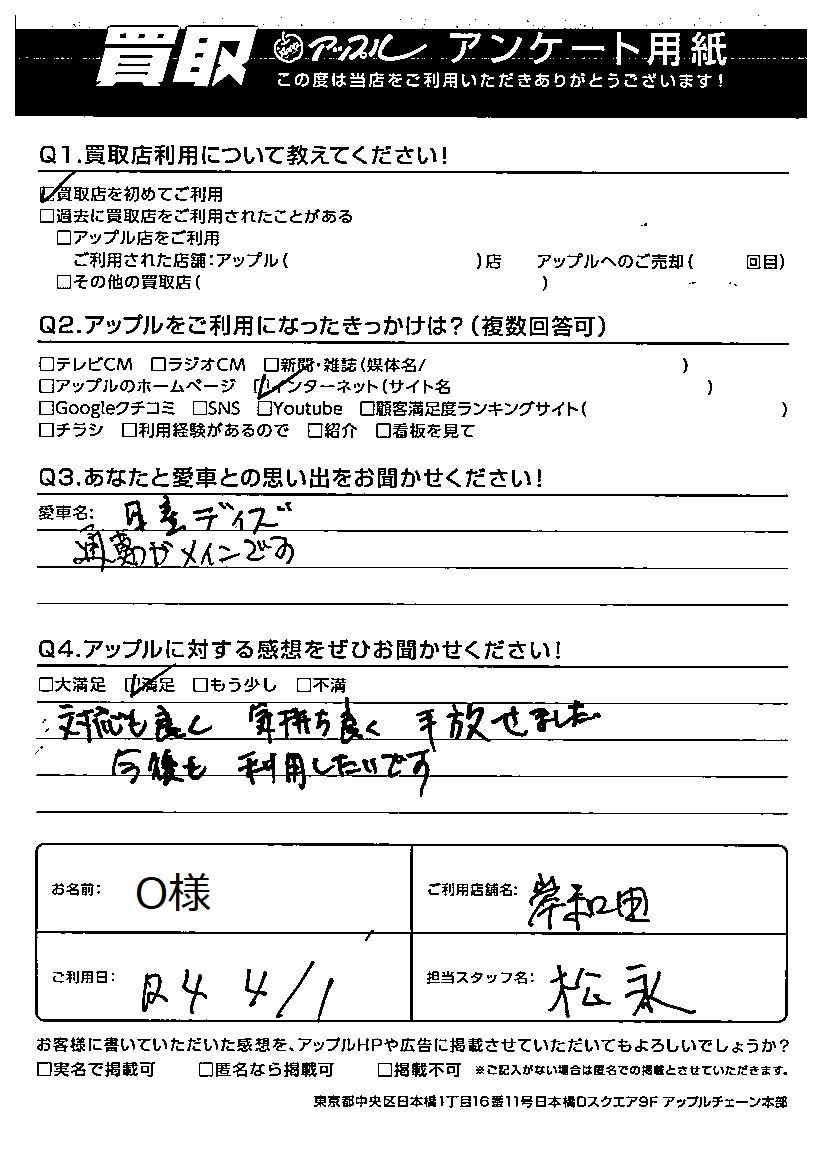 買取 アップル アンケート用紙
この度は当店をご利用いただきありがとうございます!
Q1.買取店利用について教えてください!
☑買取店を初めてご利用
□過去に買取店をご利用されたことがある
□アップル店をご利用
ご利用された店舗:アップル( )店 アップルへのご売却( 回目)
□その他の買取店( )
Q2.アップルをご利用になったきっかけは?(複数回答可)
□テレビCM □ラジオCM □新聞・雑誌(媒体名/ )
□アップルのホームページ ☑インターネット(サイト名 )
□Googleクチコミ □SNS □Youtube □顧客満足度ランキングサイト( )
□チラシ □利用経験があるので □紹介 □看板を見て
Q3.あなたと愛車との思い出をお聞かせください!
愛車名: 日産デイズ
通勤がメインです
Q4.アップルに対する感想をぜひお聞かせください!
□大満足 ☑満足 □もう少し □不満
対応も良く 気持ち良く 手放せました
今後も 利用したいです
お名前: O様 ご利用店舗名: 岸和田
ご利用日: R4 4/1 担当スタッフ名: 松永
お客様に書いていただいた感想を、アップルHPや広告に掲載させていただいてもよろしいでしょうか?
□実名で掲載可 □匿名なら掲載可 □掲載不可 ※ご記入がない場合は匿名での掲載とさせていただきます。
東京都中央区日本橋1丁目16番11号日本橋Dスクエア9F アップルチェーン本部